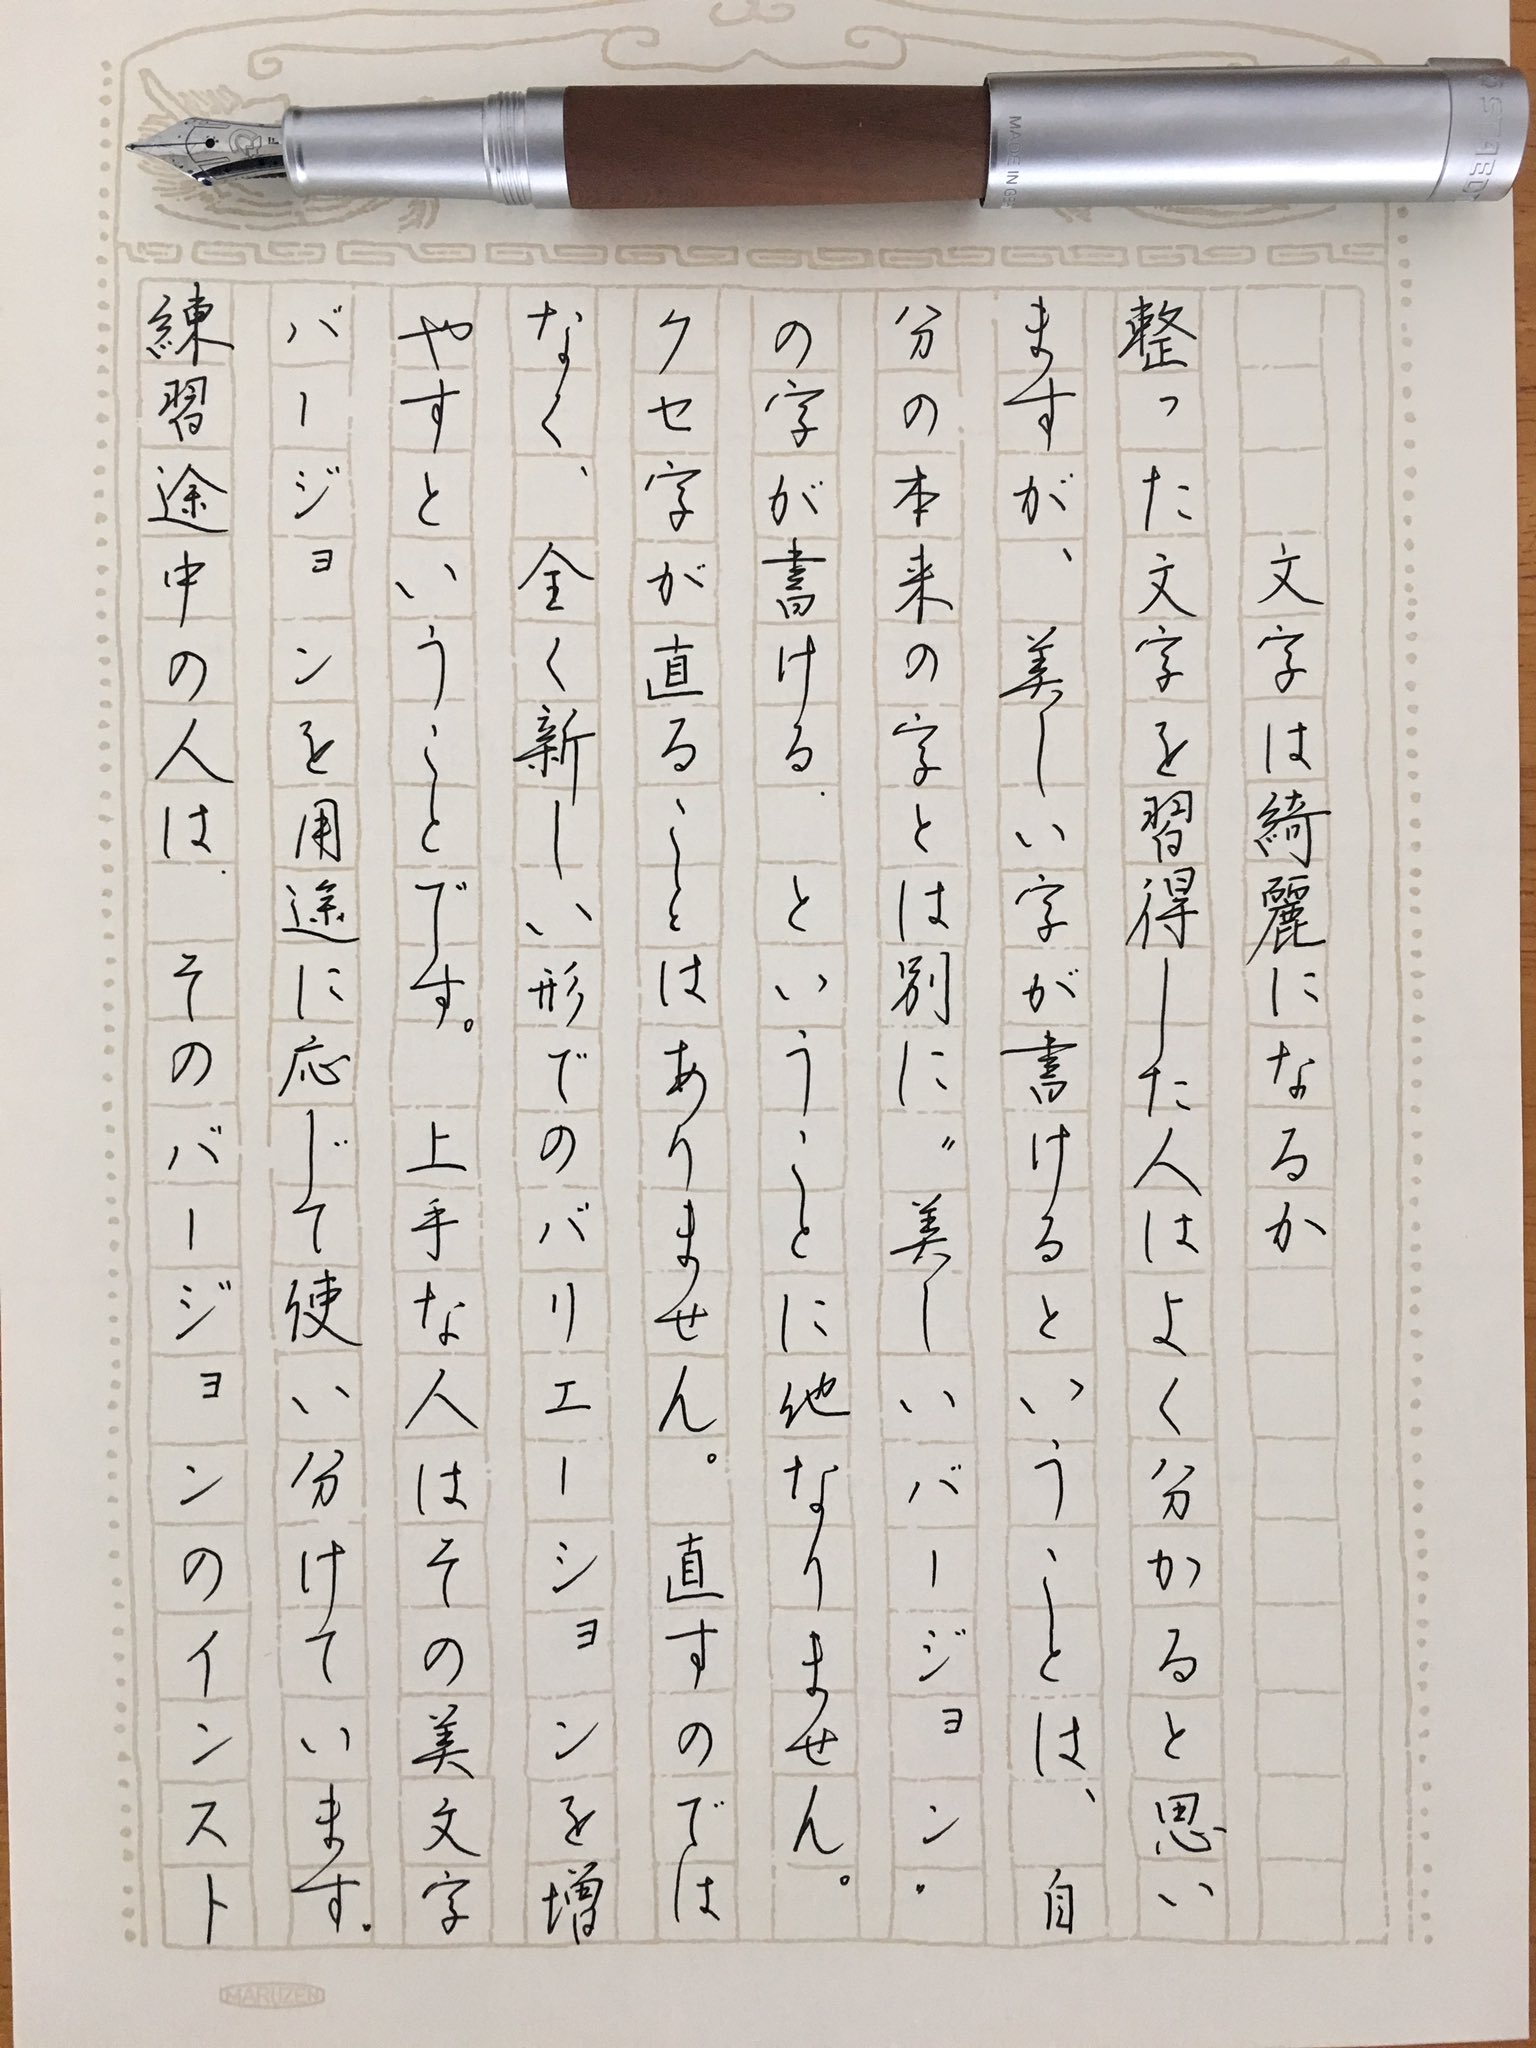 文字は綺麗になるか
整った文字を習得した人はよく分かると思い
ますが、美しい字が書けるということは、自
分の本来の字とは別に〝美しいバージョン〟
の字が書ける、ということに他なりません。
クセ字が直ることはありません。直すのでは
なく、全く新しい形でのバリエーションを増
やすということです。上手な人はその美文字
バージョンを用途に応じて使い分けています。
練習途中の人は、そのバージョンのインスト
MARUZEN
MADE IN GE
STAED